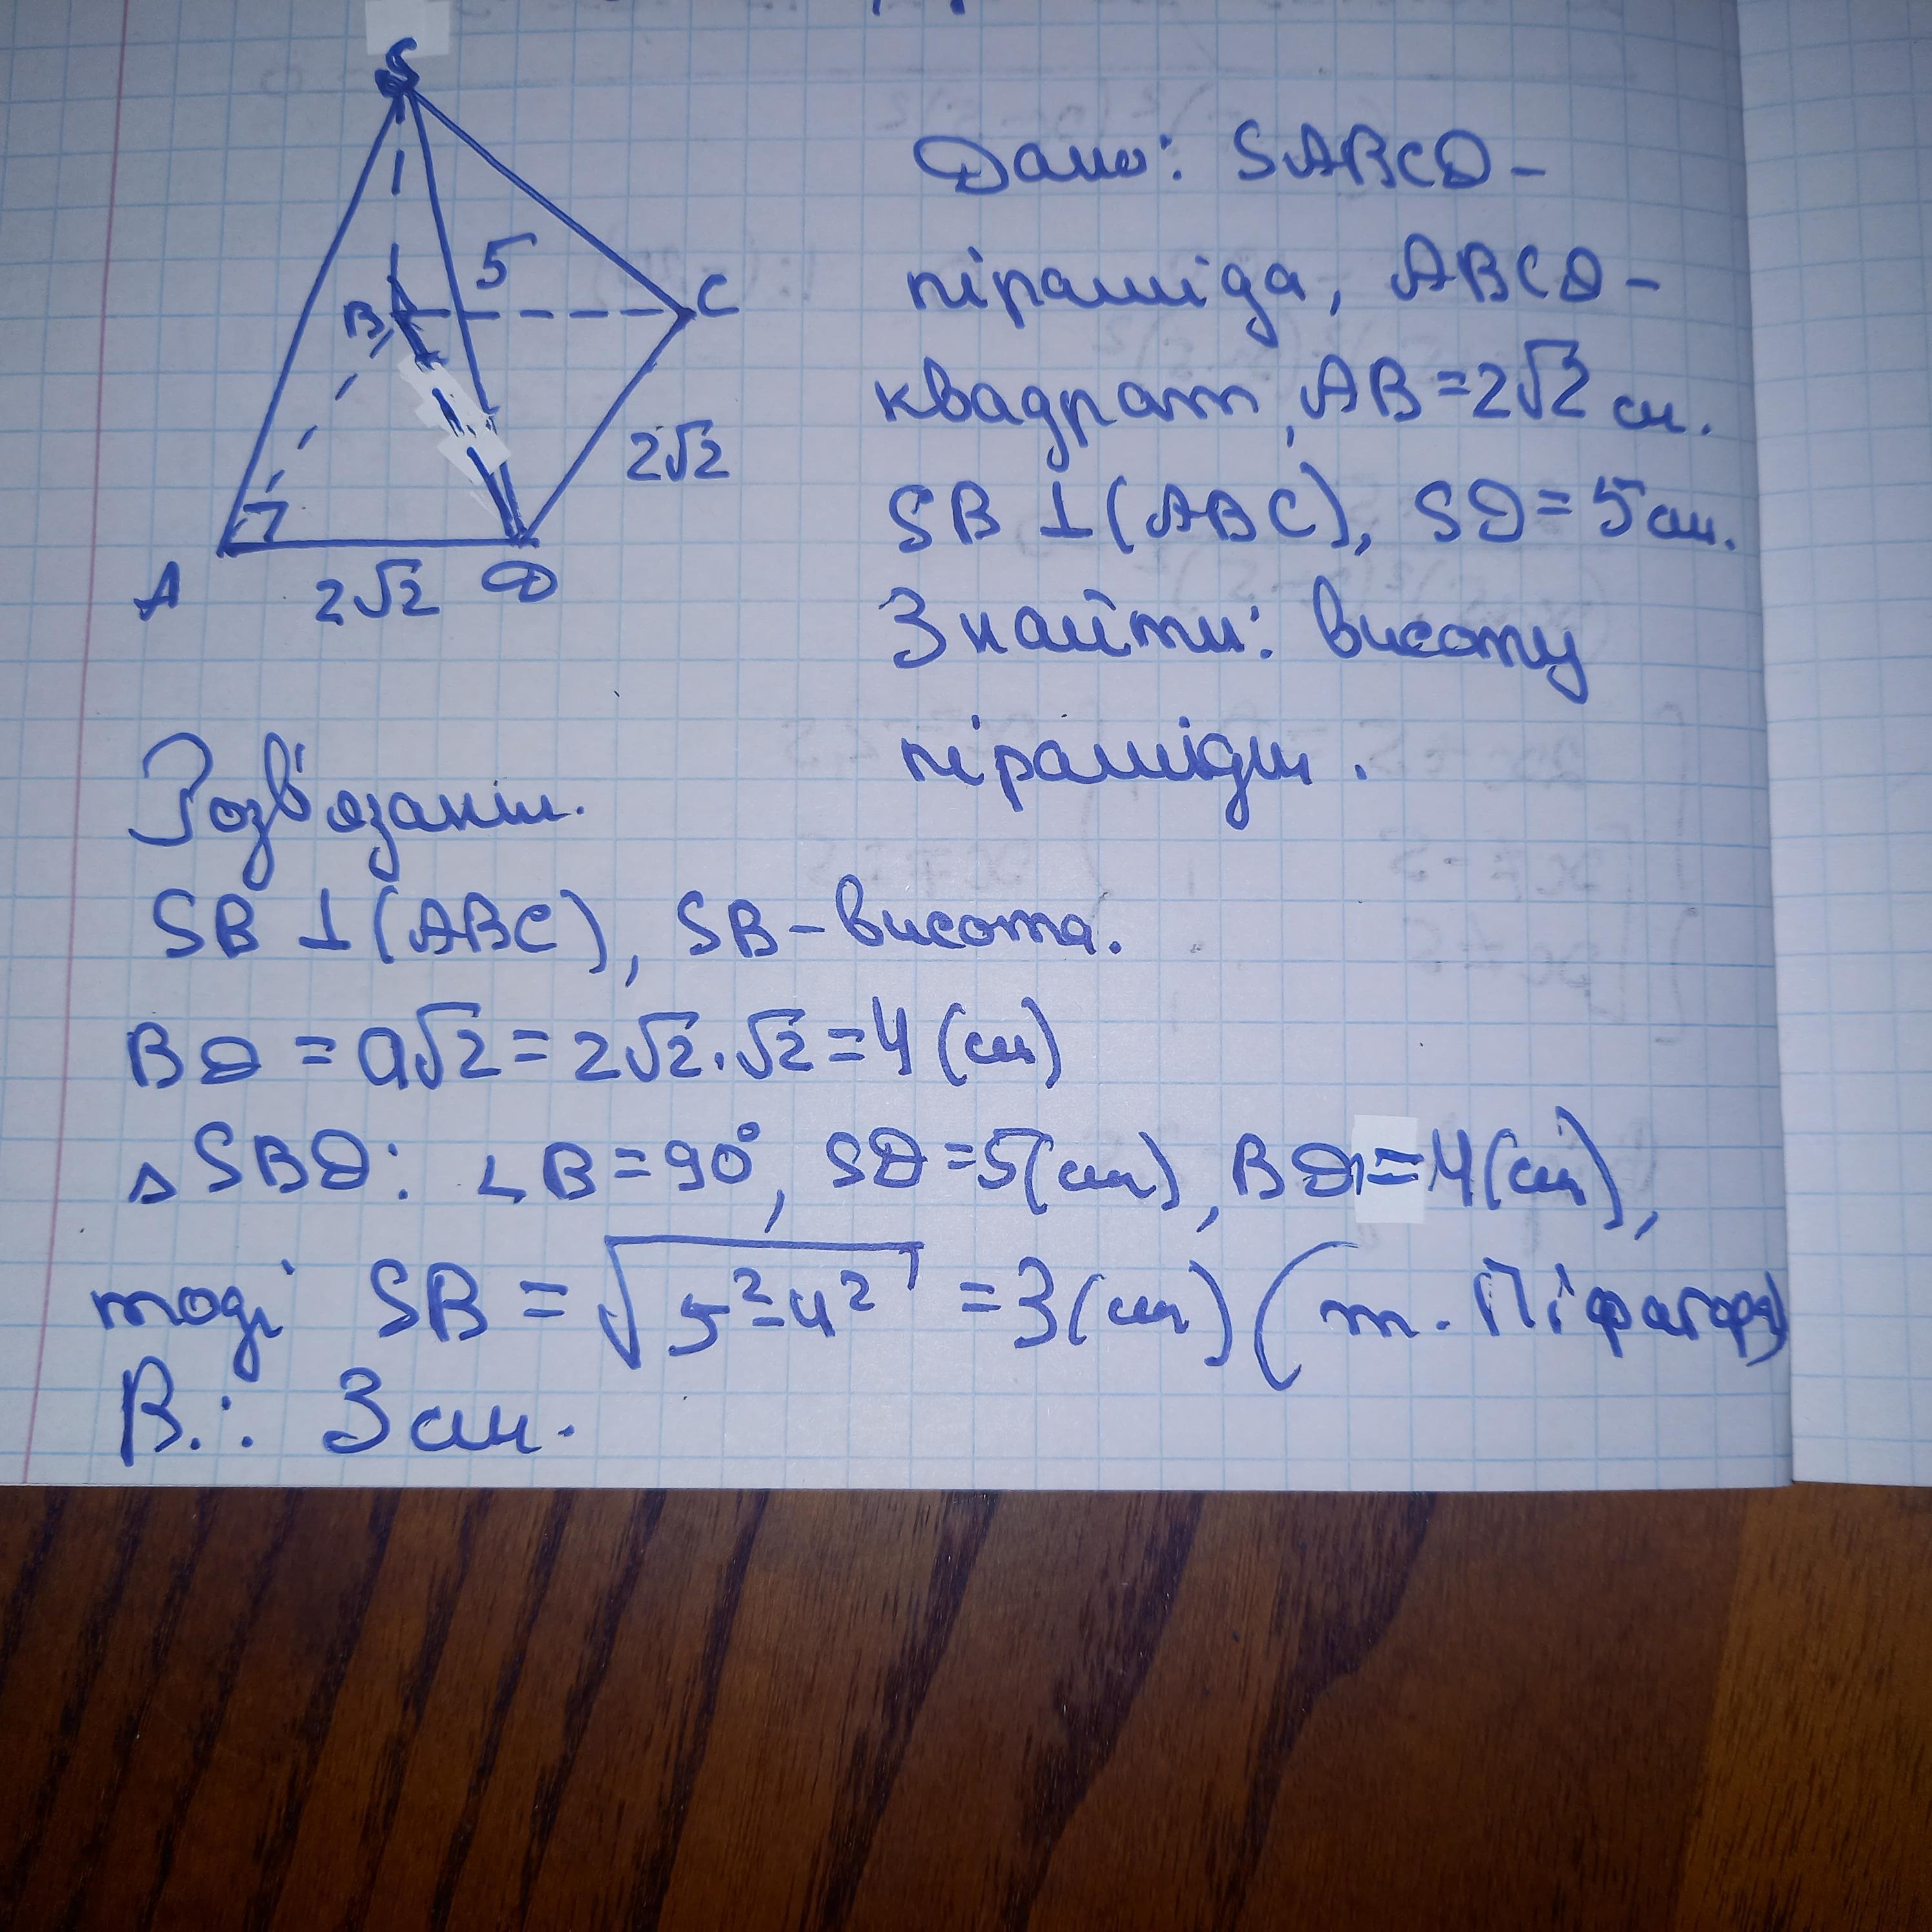 S
5
B
C
2√2
A
2√2
D
Дано: SABCD -
піраміда, ABCD -
квадрат, AB = 2√2 см.
SB ⊥ (ABC), SD = 5 см.
Знайти: висоту
піраміди.
Розв'язання.
SB ⊥ (ABC), SB - висота.
BD = a√2 = 2√2 · √2 = 4 (см)
△ SBD: ∠B = 90°, SD = 5 (см), BD = 4 (см),
тоді SB = √5² - 4² = 3 (см) (т. Піфагора)
В.: 3 см.